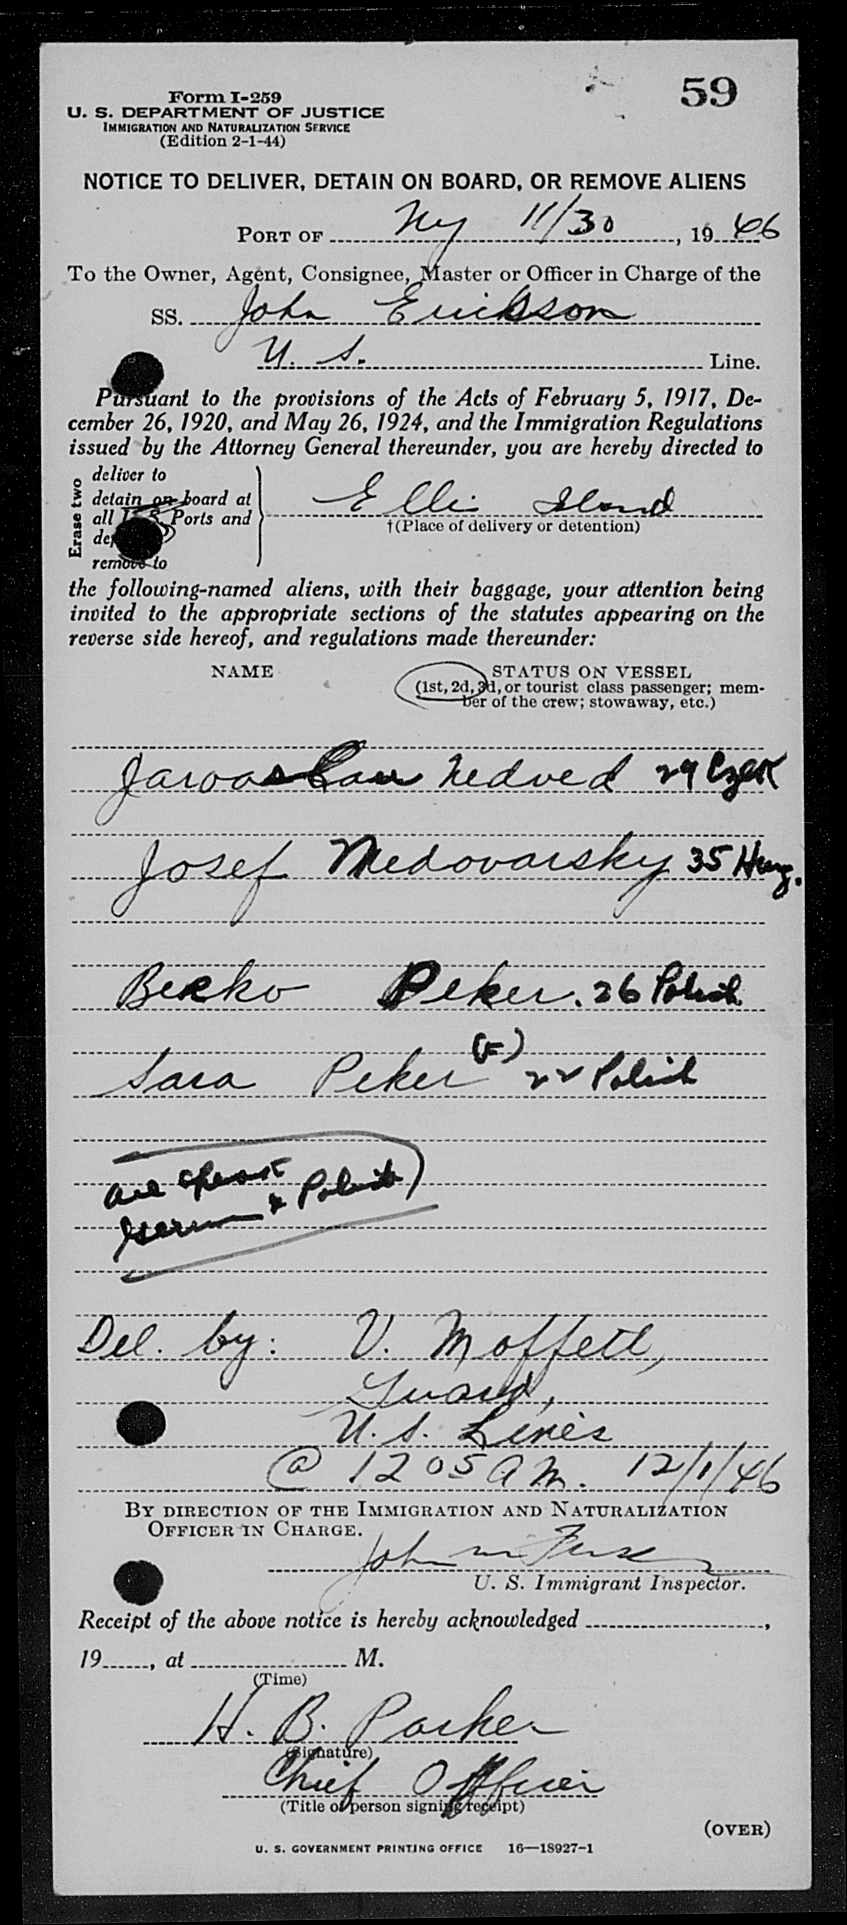 59
Form I-259
U. S. DEPARTMENT OF JUSTICE
IMMIGRATION AND NATURALIZATION SERVICE
(Edition 2-1-44)
NOTICE TO DELIVER, DETAIN ON BOARD, OR REMOVE ALIENS
PORT OF Ny 11/30, 1946
To the Owner, Agent, Consignee, Master or Officer in Charge of the
SS. John Ericsson
U. S. Line.
Pursuant to the provisions of the Acts of February 5, 1917, De-
cember 26, 1920, and May 26, 1924, and the Immigration Regulations
issued by the Attorney General thereunder, you are hereby directed to
Erase two
deliver to
detain on board at
all U. S. Ports and
remove to
Ellis Island
†(Place of delivery or detention)
the following-named aliens, with their baggage, your attention being
invited to the appropriate sections of the statutes appearing on the
reverse side hereof, and regulations made thereunder:
NAME STATUS ON VESSEL
(1st, 2d, 3d, or tourist class passenger; mem-
ber of the crew; stowaway, etc.)
Nedved 29 Czek
Josef Medovarsky 35 Hung.
Berko Peker. 26 Polish
Sara Peker (F) 22 Polish
German & Polish)
Del. by: V. Moffett,
Guard,
U. S. Lines
@ 1205 AM. 12/1/46
BY DIRECTION OF THE IMMIGRATION AND NATURALIZATION
OFFICER IN CHARGE.
John
U. S. Immigrant Inspector.
Receipt of the above notice is hereby acknowledged ,
19 , at M.
(Time)
H. B. Parker
(Signature)
Chief Officer
(Title of person signing receipt)
(OVER)
U. S. GOVERNMENT PRINTING OFFICE 16—18927-1